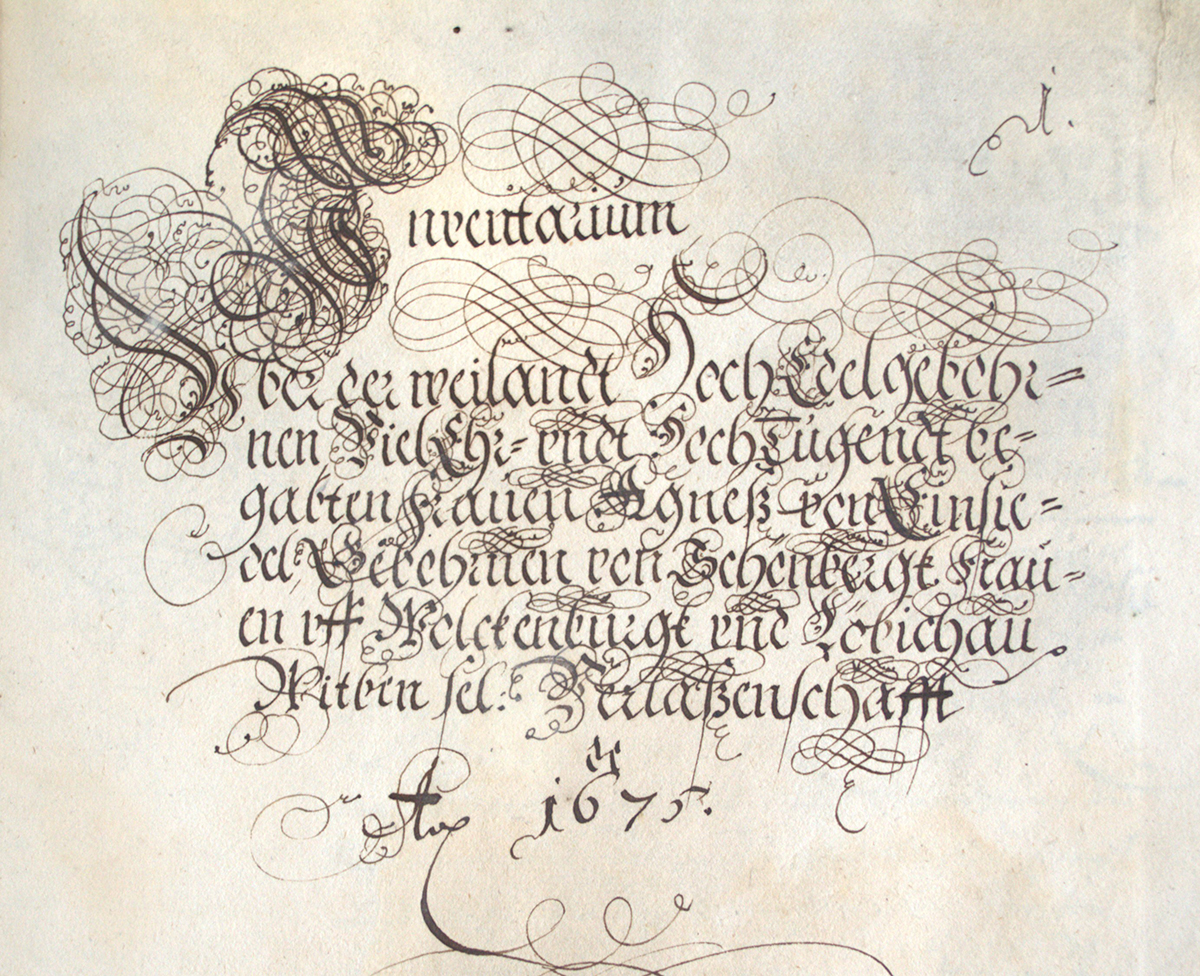 Inventarium
Über der weilandt Hoch Edelgebohr=
nen Viel Ehr= vndt Hoch Tugendt be=
gabten Frauen Agneß von Einsie=
del Gebohrnen von Schönbergk Frau=
en vff Wolckenburgk vnd Löbichau
Witben sel: Verlaßenschafft
de
Ao 1675.